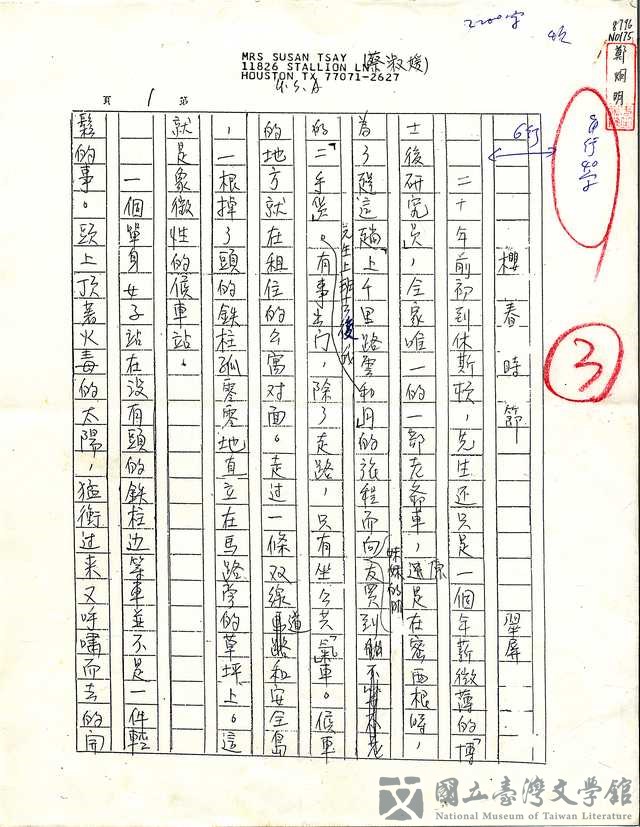 2200字
8796
NO175
鄭烱明
MRS SUSAN TSAY (蔡淑媛)
11826 STALLION LN
HOUSTON TX 77071-2627
U.S.A
第 1 頁
6行
40字
③
櫻春時節
翠屏
二十年前初到休斯頓，先生还只是一個年薪微薄的「博
士後研究员，全家唯一的一部老爺車，還是在密西根時，
為了趕這趟上千里路雲和月的旅程而向妹妹的朋友買到
的二手貨。先生上班去後，有事出门，除了走路，只有坐公共氣車。候車
的地方就在租住的公寓对面。走过一條双線馬道和安全島
，一根掉了頭的鉄柱孤零零地直立在馬路旁的草坪上。這
就是象徵性的候車站。
一個單身女子站在没有頭的鉄柱边等車並不是一件輕
鬆的事。頭上頂著火毒的太陽，猛衝过来又呼嘯而去的
國立臺灣文學館
National Museum of Taiwan Literature